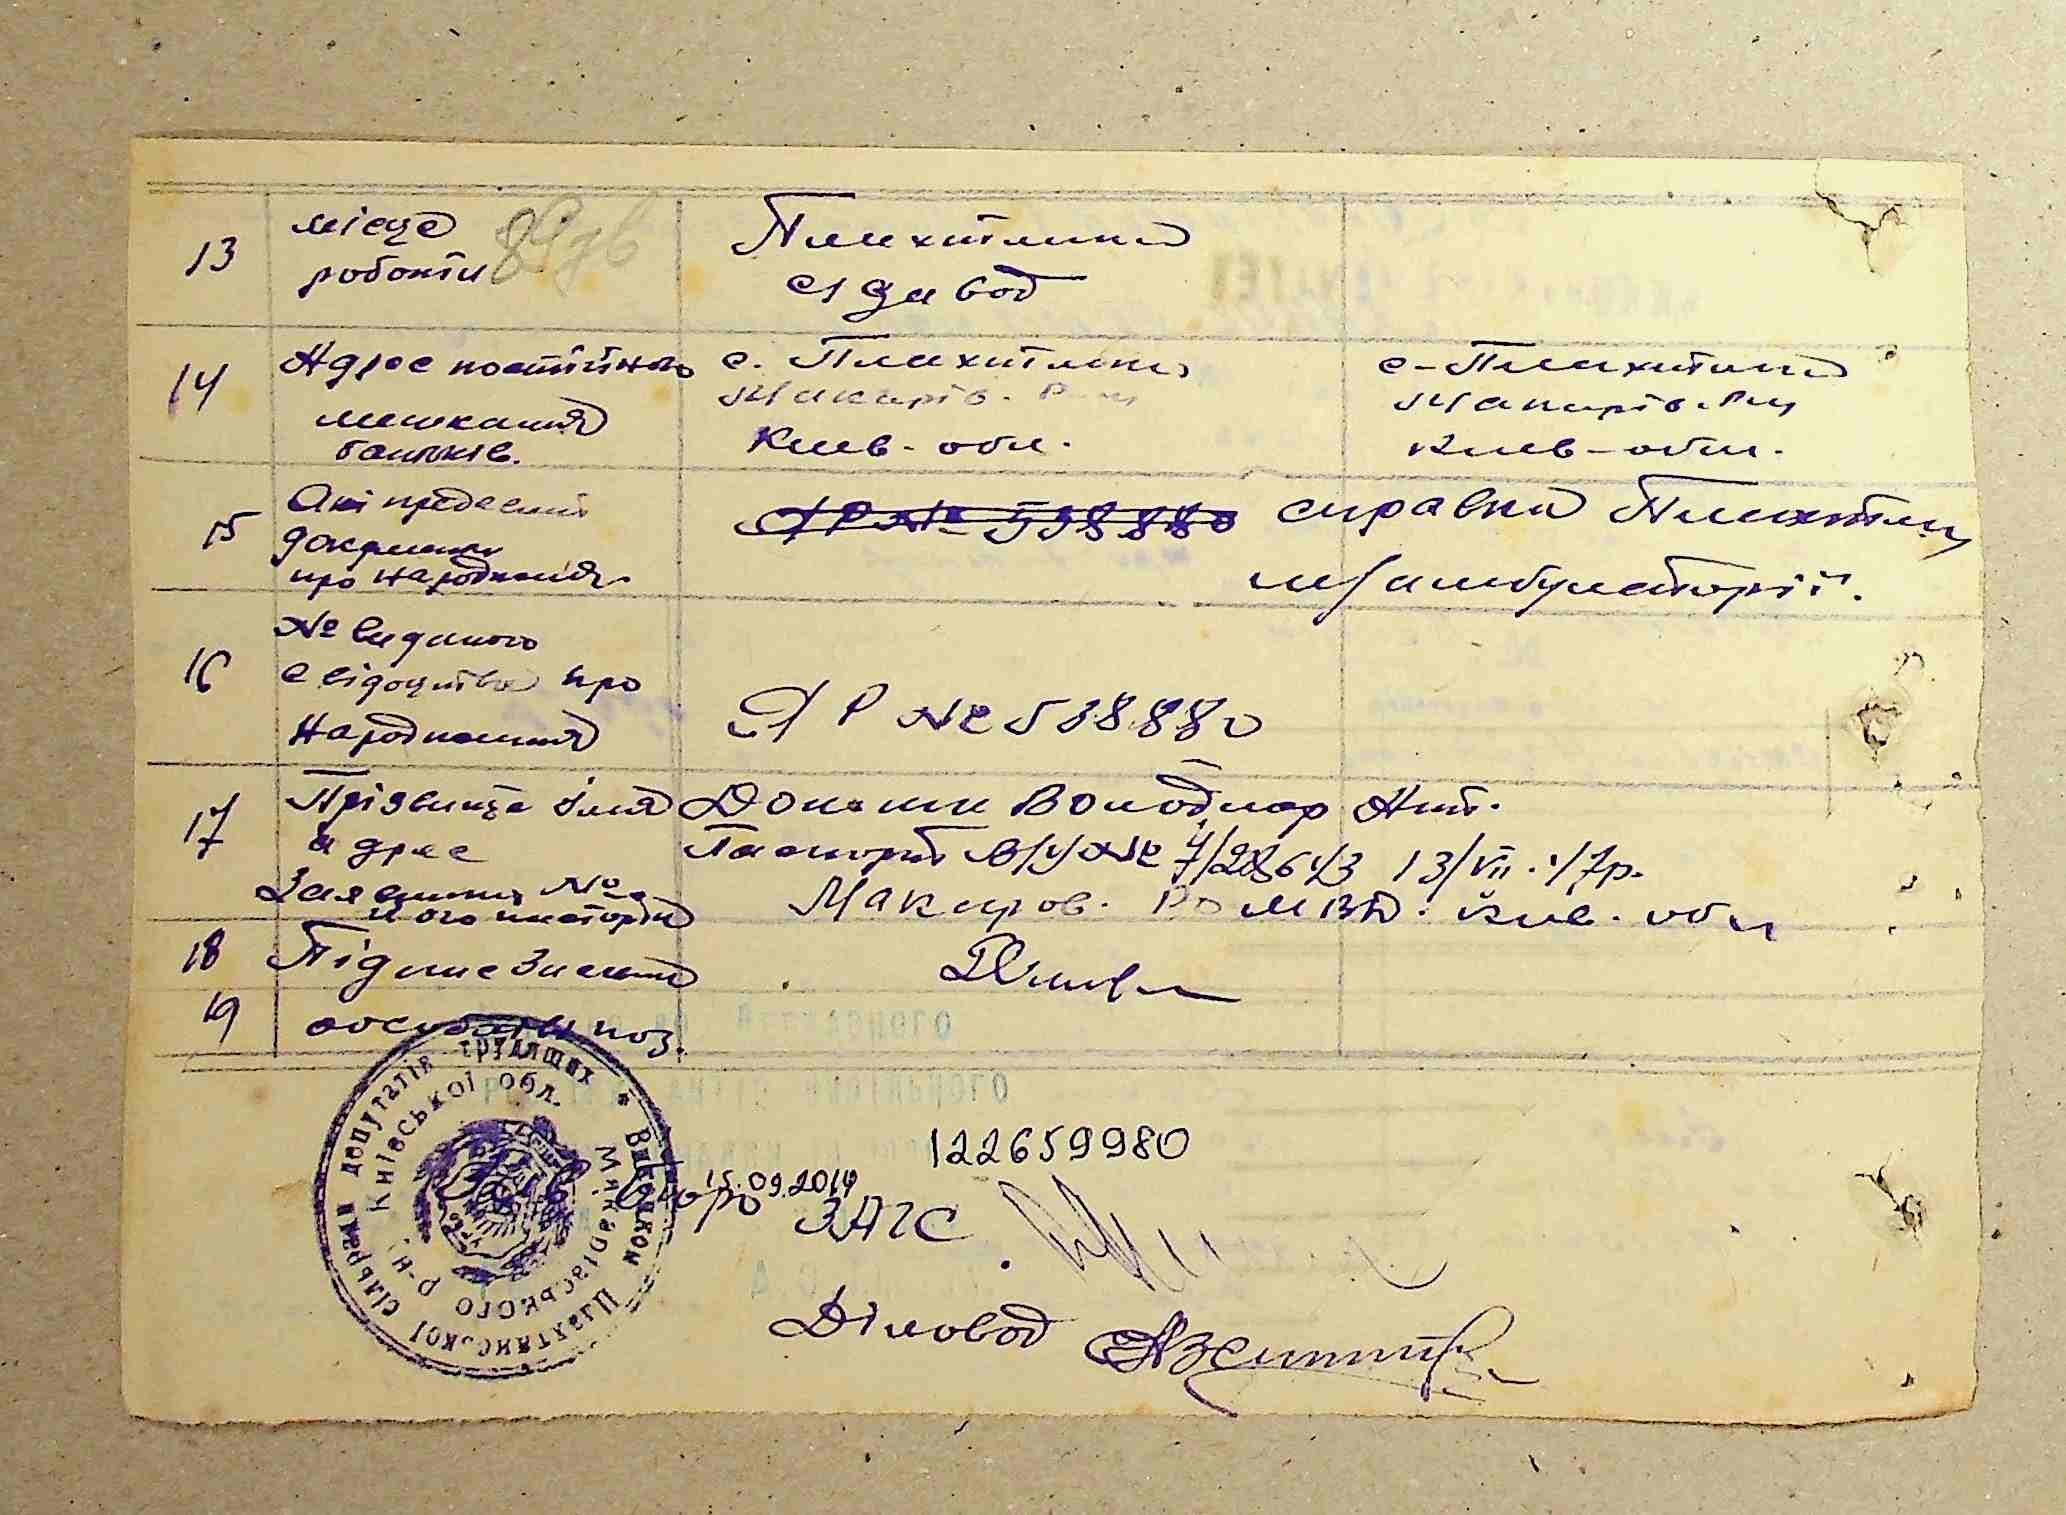 13 місце
роботи
Плахтянка
с/завод
14 Адрес постійного
мешкання
батьків.
с. Плахтянка
Макарів. Р-ну
Киев-обл.
с-Плахтянка
Макарів. Р-ну
Киев-обл.
15 Які предявлені
документи
про народження.
ЯР № 538880
справка Плахтян
м/амбулаторії.
16 № виданого
свідоцтва про
народження
ЯР № 538880
17 Прізвище імя
адрес
Заявника №
його паспорта
Володимир Ант.
Паспорт № 13/VII.47р.
Макаров. РО МВД. Київ. обл
18 Підпис
19 особи
89зв
Виконком Плахтянської сільради депутатів трудящих
Макарівського р-н. Київської обл.
122659980
15.09.2014
Зав бюро ЗАГС
Діловод